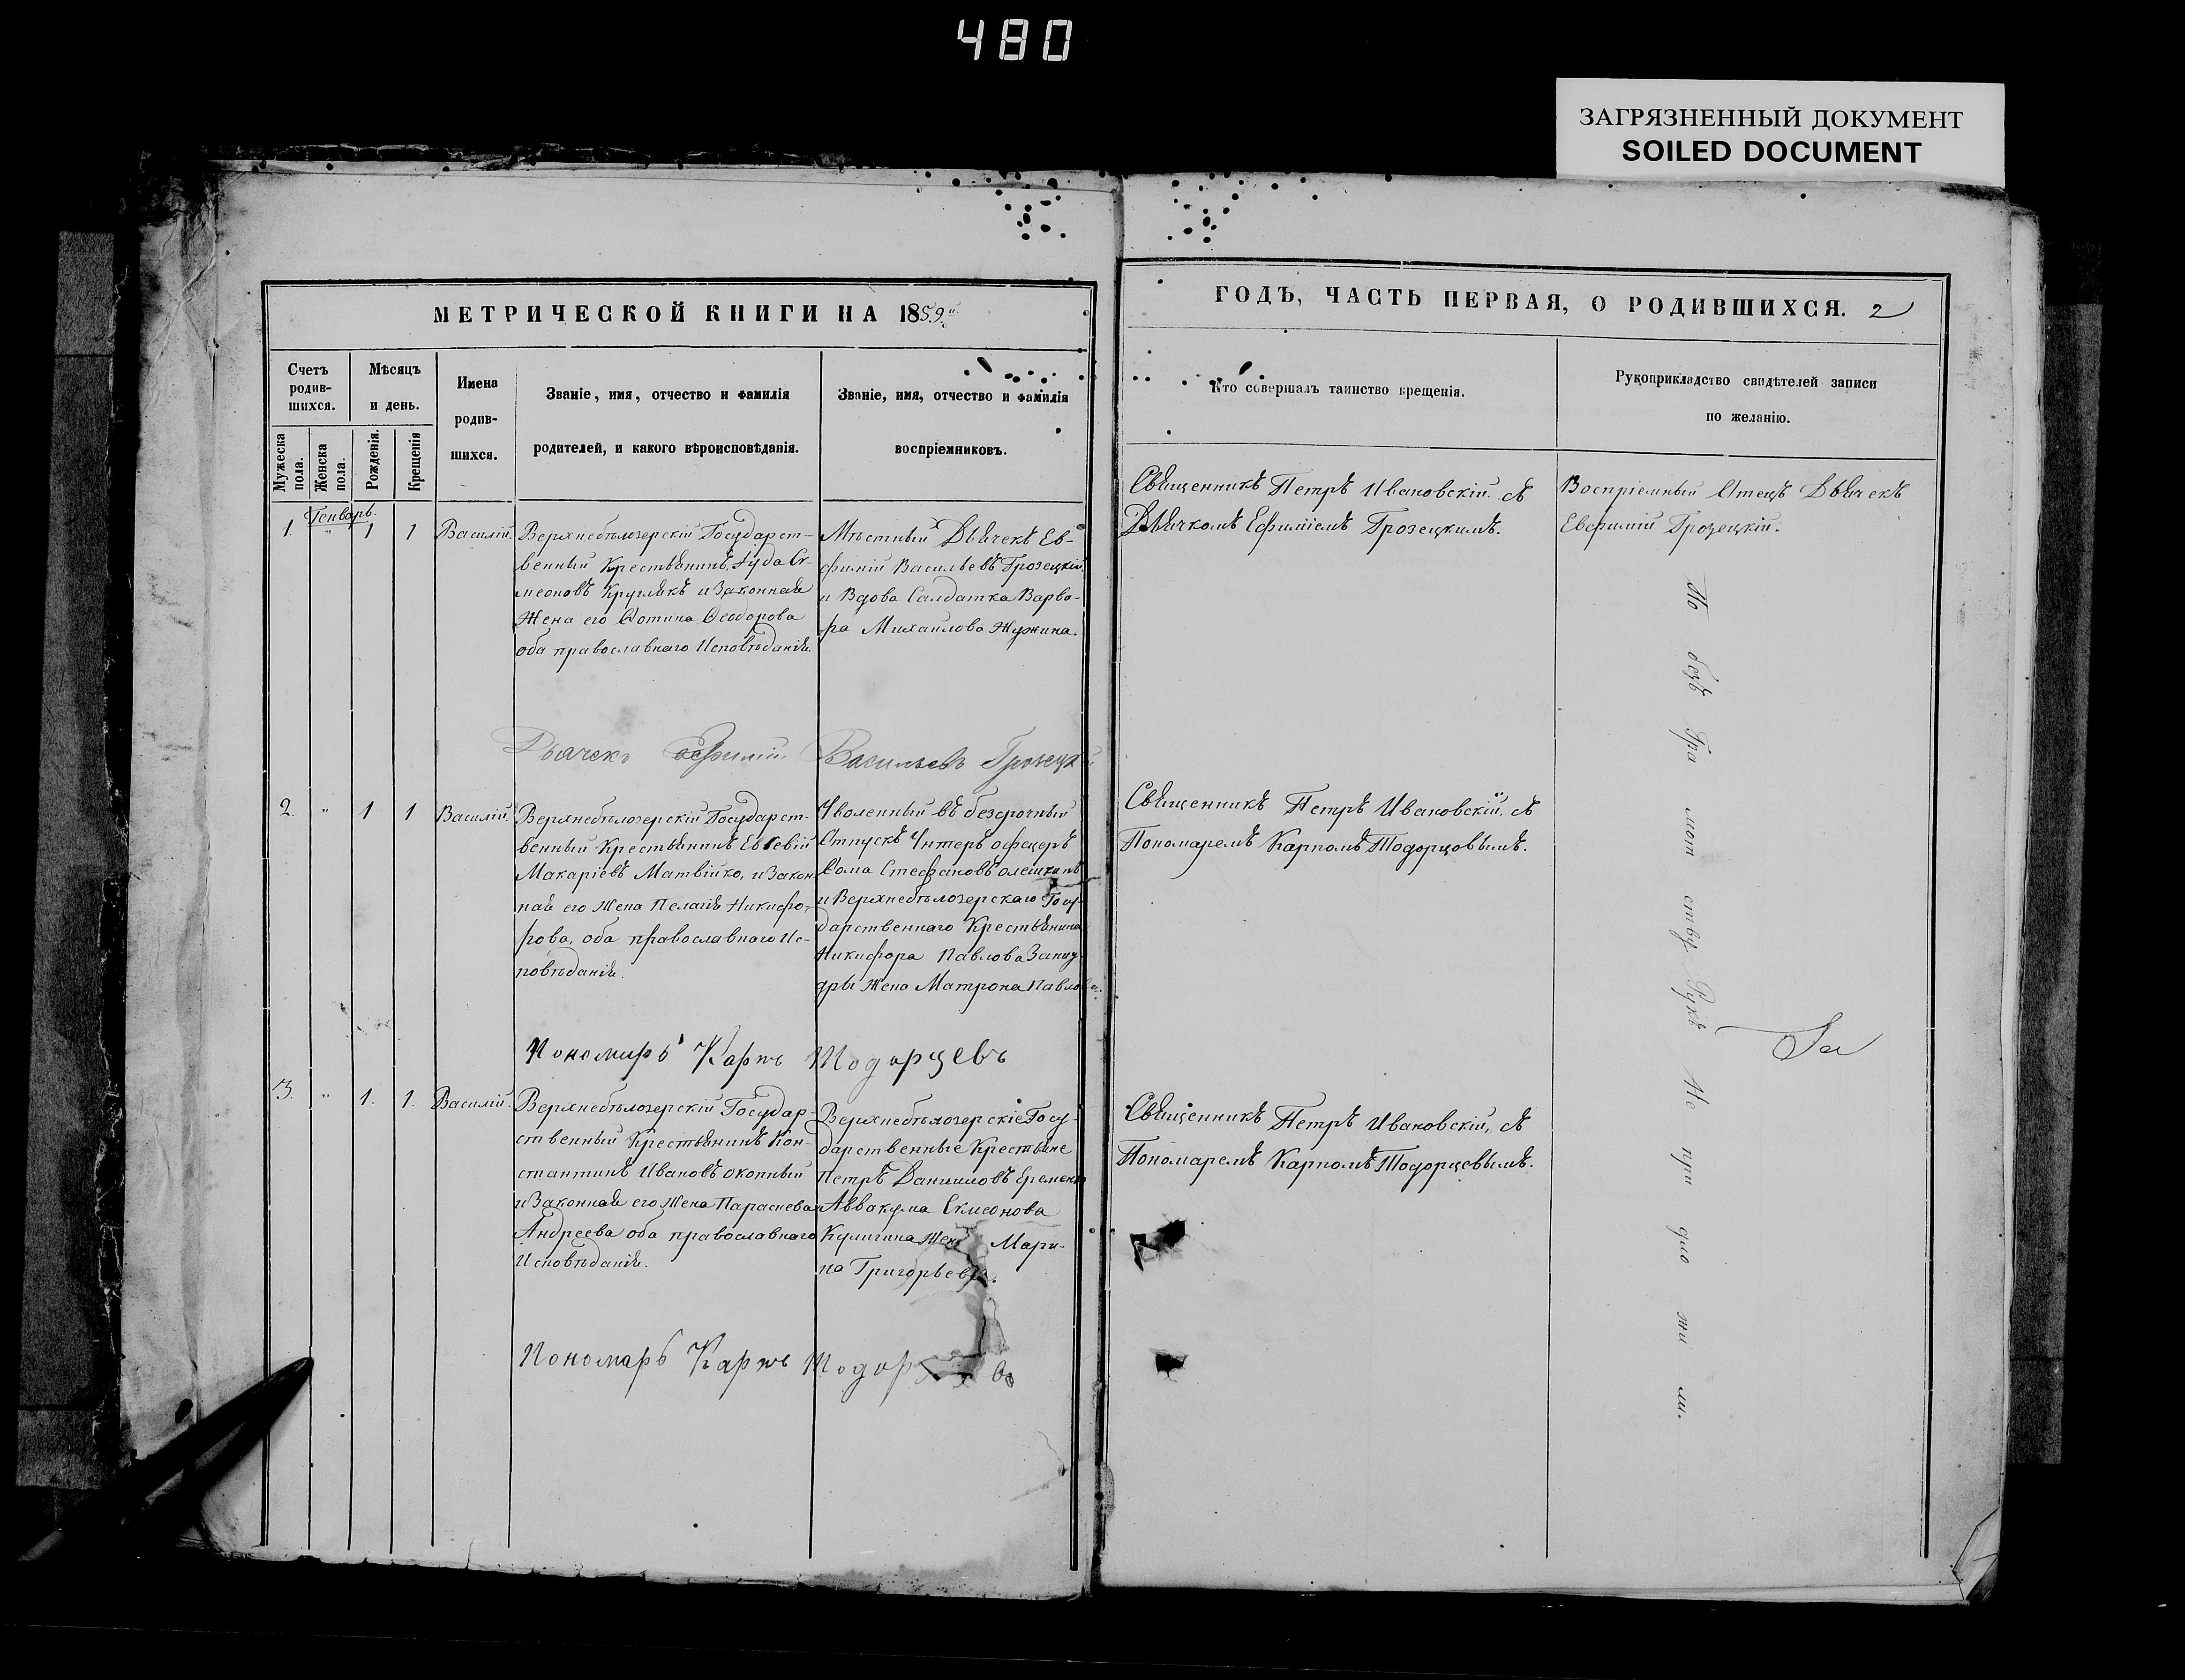 480
ЗАГРЯЗНЕННЫЙ ДОКУМЕНТ
SOILED DOCUMENT
МЕТРИЧЕСКОЙ КНИГИ НА 1859
ГОДЪ, ЧАСТЬ ПЕРВАЯ, О РОДИВШИХСЯ. 2
Счетъ
родив-
шихся.
Мужеска
пола.
Женска
пола.
Мѣсяцъ
и день.
Рожденія.
Крещенія
Имена
родив-
шихся.
Званіе, имя, отчество и фамилія
родителей, и какого вѣроисповѣданія.
Званіе, имя, отчество и фамилія
воспріемниковъ.
Кто совершалъ таинство крещенія.
Рукоприкладство свидѣтелей записи
по желанію.
Генварь.
1. " 1 1 Василій.
Верхнебѣлозерскій Государст-
венный Крестьянинъ Іуда Си-
меоновъ Круглякъ и Законная
Жена его Фотина Феодорова
оба православнаго Исповѣданія.
Мѣстный Дьячекъ Ев-
фимій Васильевъ Грозецкій,
и Вдова Салдатка Варва-
ра Михайлова Жужина.
Священникъ Петръ Ивановскій съ
Дьячкомъ Ефиміемъ Грозецкимъ.
Воспріемный Отецъ Дьячекъ
Евфимій Грозецкій.
Дьячекъ Евфимій Васильевъ Грозецкій
2. " 1 1 Василій.
Верхнебѣлозерскій Государст-
венный Крестьянинъ Евсевій
Макаріевъ Матвійко, и Закон
ная его Жена Пелагія Никифо-
рова, оба православнаго Ис-
повѣданія.
Уволенный въ безсрочный
Отпускъ Унтеръ офецеръ
Фома Стефановъ
и Верхнебѣлозерскаго Госу
дарственнаго Крестьянина
Никифора Павлова
дры Жена Матрона Павлова.
Священникъ Петръ Ивановскій, съ
Пономаремъ Карпомъ Тодорцовымъ.
Пономарь Карпъ Тодорцевъ
3. " 1. 1. Василій.
Верхнебѣлозерскій Государ-
ственный Крестьянинъ Кон-
стантинъ Ивановъ Окопный
и Законная его Жена Параскева
Андреева оба православнаго
Исповѣданія.
Верхнебѣлозерскіе Госу-
дарственные Крестьяне
Петръ Данииловъ Еременко
Аввакума Симеонова
Кулигина Жена Мари-
на Григорьева.
Священникъ Петръ Ивановскій, съ
Пономаремъ Карпомъ Тодорцевымъ.
Пономарь Карпъ
По безъ Гра мот ству Рукъ Не при ло жи ли.